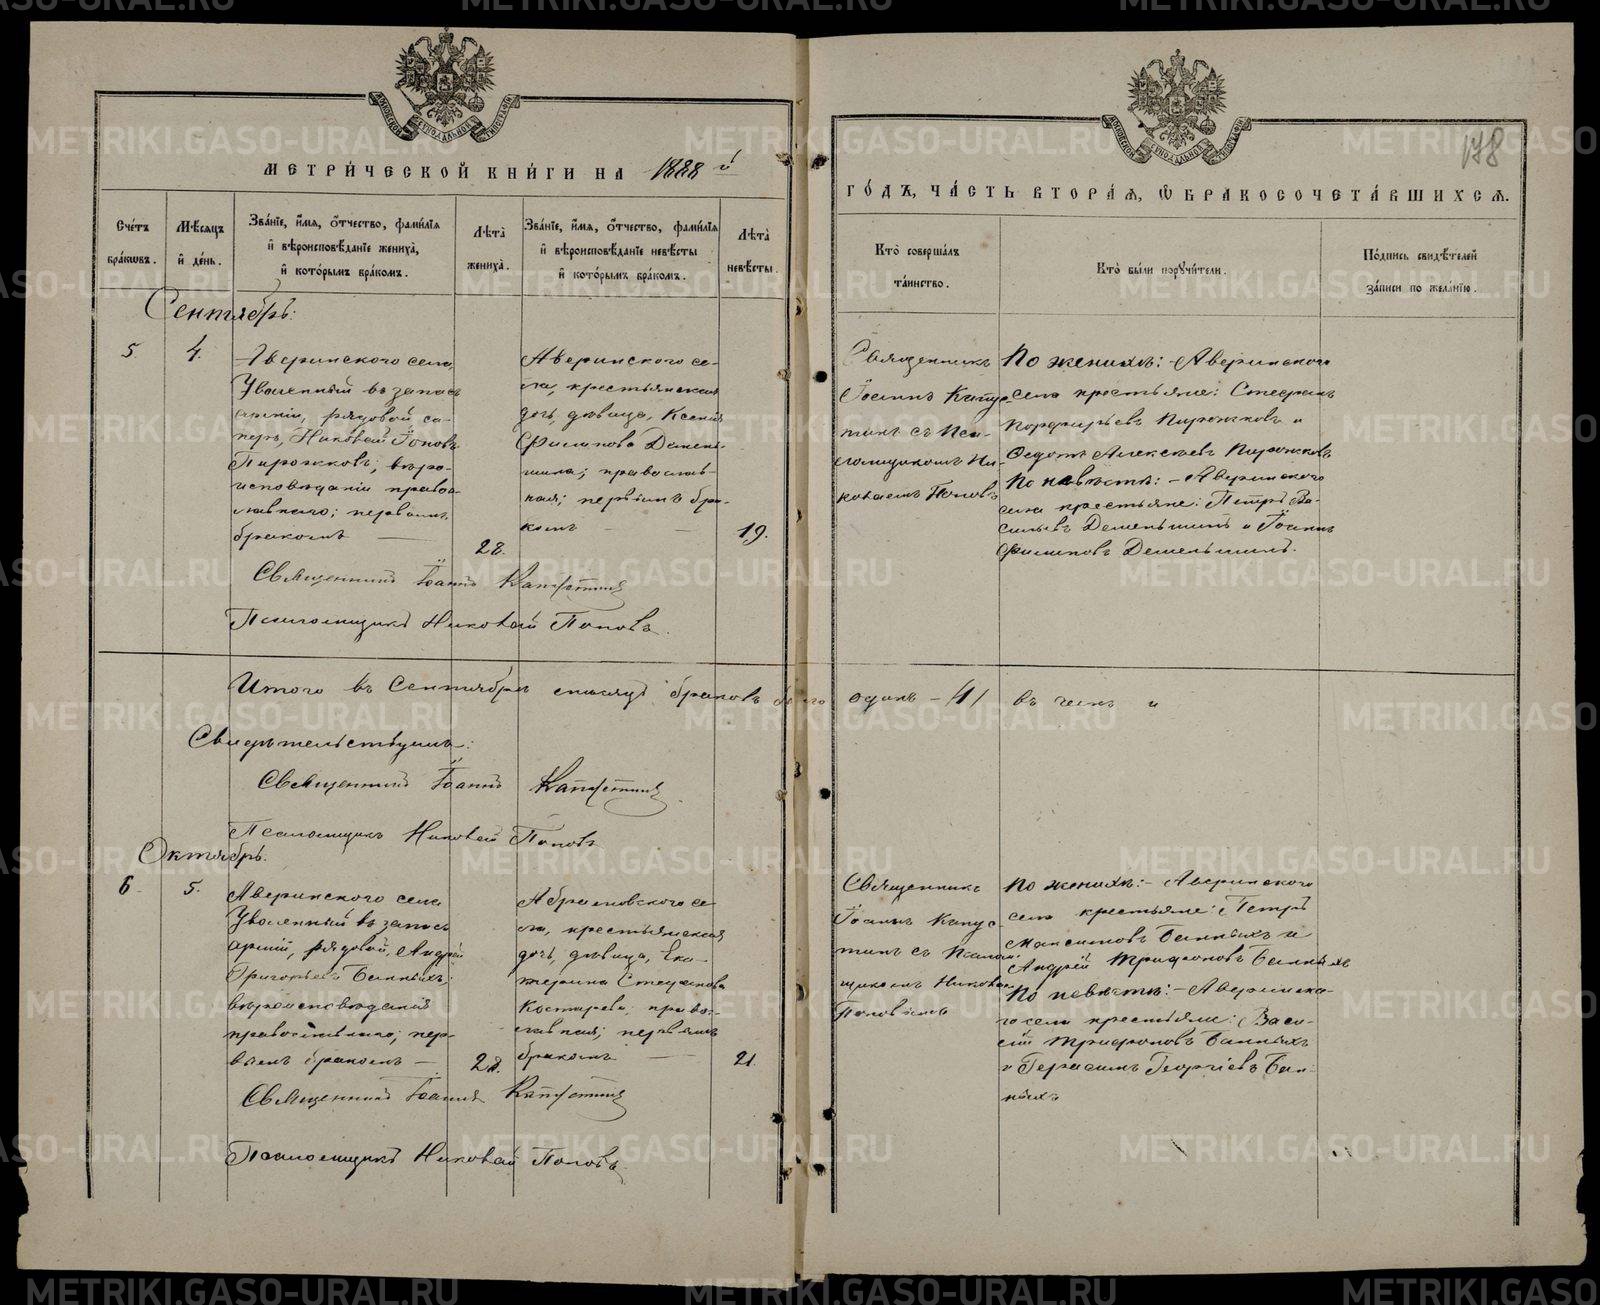 МЕТРИЧЕСКОЙ КНИГИ НА 1888 й
ГОДЪ, ЧАСТЬ ВТОРАЯ, Ѡ БРАКОСОЧЕТАВШИХСЯ.
178
Счетъ браковъ.
Мѣсяцъ и день.
Званіе, имя, отчество, фамилія и вѣроисповѣданіе жениха, и которымъ бракомъ.
Лѣта жениха.
Званіе, имя, отчество, фамилія и вѣроисповѣданіе невѣсты и которымъ бракомъ.
Лѣта невѣсты.
Кто совершалъ таинство.
Кто были поручители.
Подпись свидѣтелей записи по желанію.
Сентябрь:
5
4.
Аверинскаго села,
Уволенный въ запасъ
арміи, рядовой са-
перъ, Николай
Пирожковъ; вѣро-
исповѣданія право-
славнаго; первымъ
бракомъ
28.
Аверинскаго се-
ла, крестьянская
дочь, дѣвица, Ксенія
Филипова
православ-
ная; первымъ бра-
комъ
19.
Священникъ
Іоаннъ Капус-
тинъ съ Пса-
ломщикомъ Ни-
колаемъ Поповъ
По женихѣ: Аверинскаго
села крестьяне: Стефанъ
Порфирьевъ Пирожковъ и
Ѳедотъ Алексѣевъ Пирожковъ
По невѣстѣ: Аверинскаго
села крестьяне: Петръ Ва-
сильевъ и Іоаннъ
Филиповъ
Священникъ Іоаннъ Капустинъ
Псаломщикъ Николай Поповъ.
Итого въ Сентябрѣ мѣсяцѣ браковъ было одинъ - /1/
Свидѣтельствуемъ:
Священникъ Іоаннъ Капустинъ
Псаломщикъ Николай Поповъ
Октябрь.
6
5.
Аверинскаго села
Уволенный въ запасъ
арміи, рядовой, Андрей
Григорьевъ Банныхъ;
вѣроисповѣданія
православнаго; пер-
вымъ бракомъ
28.
Абрамовскаго се-
ла, крестьянская
дочь, дѣвица, Ека-
терина Стефанова
Костарева; право-
славная; первымъ
бракомъ
21.
Священникъ
Іоаннъ Капус-
тинъ съ Псалом-
щикомъ Николаемъ
Поповымъ
По женихѣ: Аверинскаго
села крестьяне: Петръ
Максимовъ Банныхъ и
Андрей Трифоновъ Банныхъ
По невѣстѣ: Аверинска-
го села крестьяне: Васи-
лій Трифоновъ Банныхъ
и Герасимъ Георгіевъ Бан-
ныхъ
Священникъ Іоаннъ Капустинъ
Псаломщикъ Николай Поповъ
METRIKI.GASO-URAL.RU